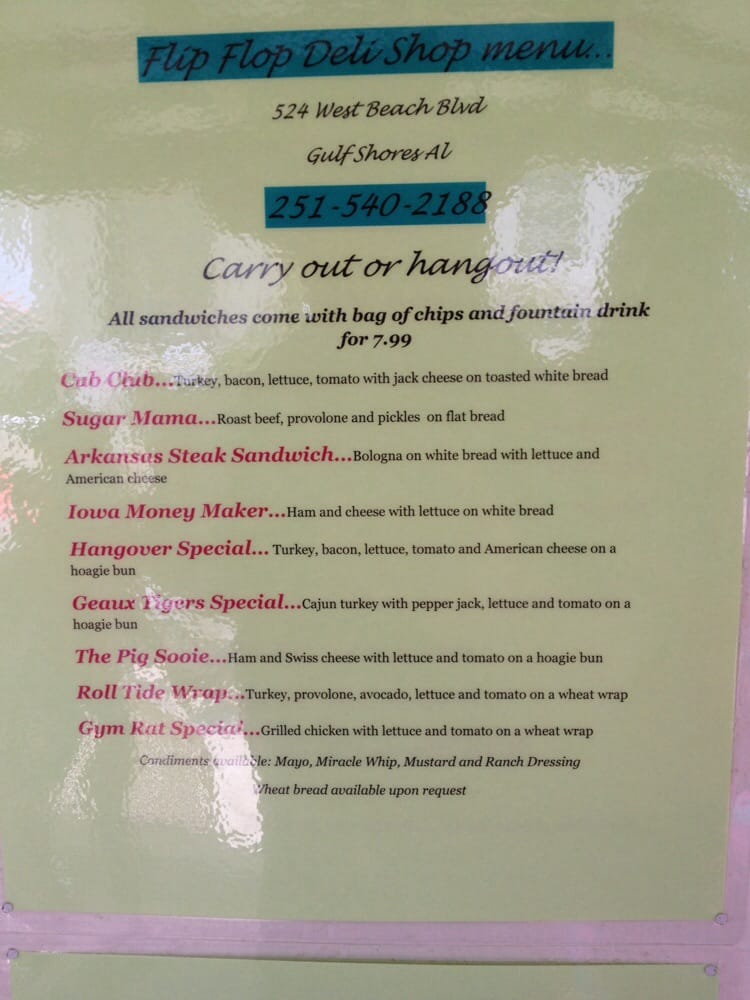 Flip Flop Deli Shop menu...
524 West Beach Blvd
Gulf Shores Al
251-540-2188
Carry out or hangout!
All sandwiches come with bag of chips and fountain drink
for 7.99
Cub Club...Turkey, bacon, lettuce, tomato with jack cheese on toasted white bread
Sugar Mama...Roast beef, provolone and pickles on flat bread
Arkansas Steak Sandwich...Bologna on white bread with lettuce and
American cheese
Iowa Money Maker...Ham and cheese with lettuce on white bread
Hangover Special... Turkey, bacon, lettuce, tomato and American cheese on a
hoagie bun
Geaux Tigers Special...Cajun turkey with pepper jack, lettuce and tomato on a
hoagie bun
The Pig Sooie...Ham and Swiss cheese with lettuce and tomato on a hoagie bun
Roll Tide Wrap...Turkey, provolone, avocado, lettuce and tomato on a wheat wrap
Gym Rat Special...Grilled chicken with lettuce and tomato on a wheat wrap
Condiments available: Mayo, Miracle Whip, Mustard and Ranch Dressing
Wheat bread available upon request